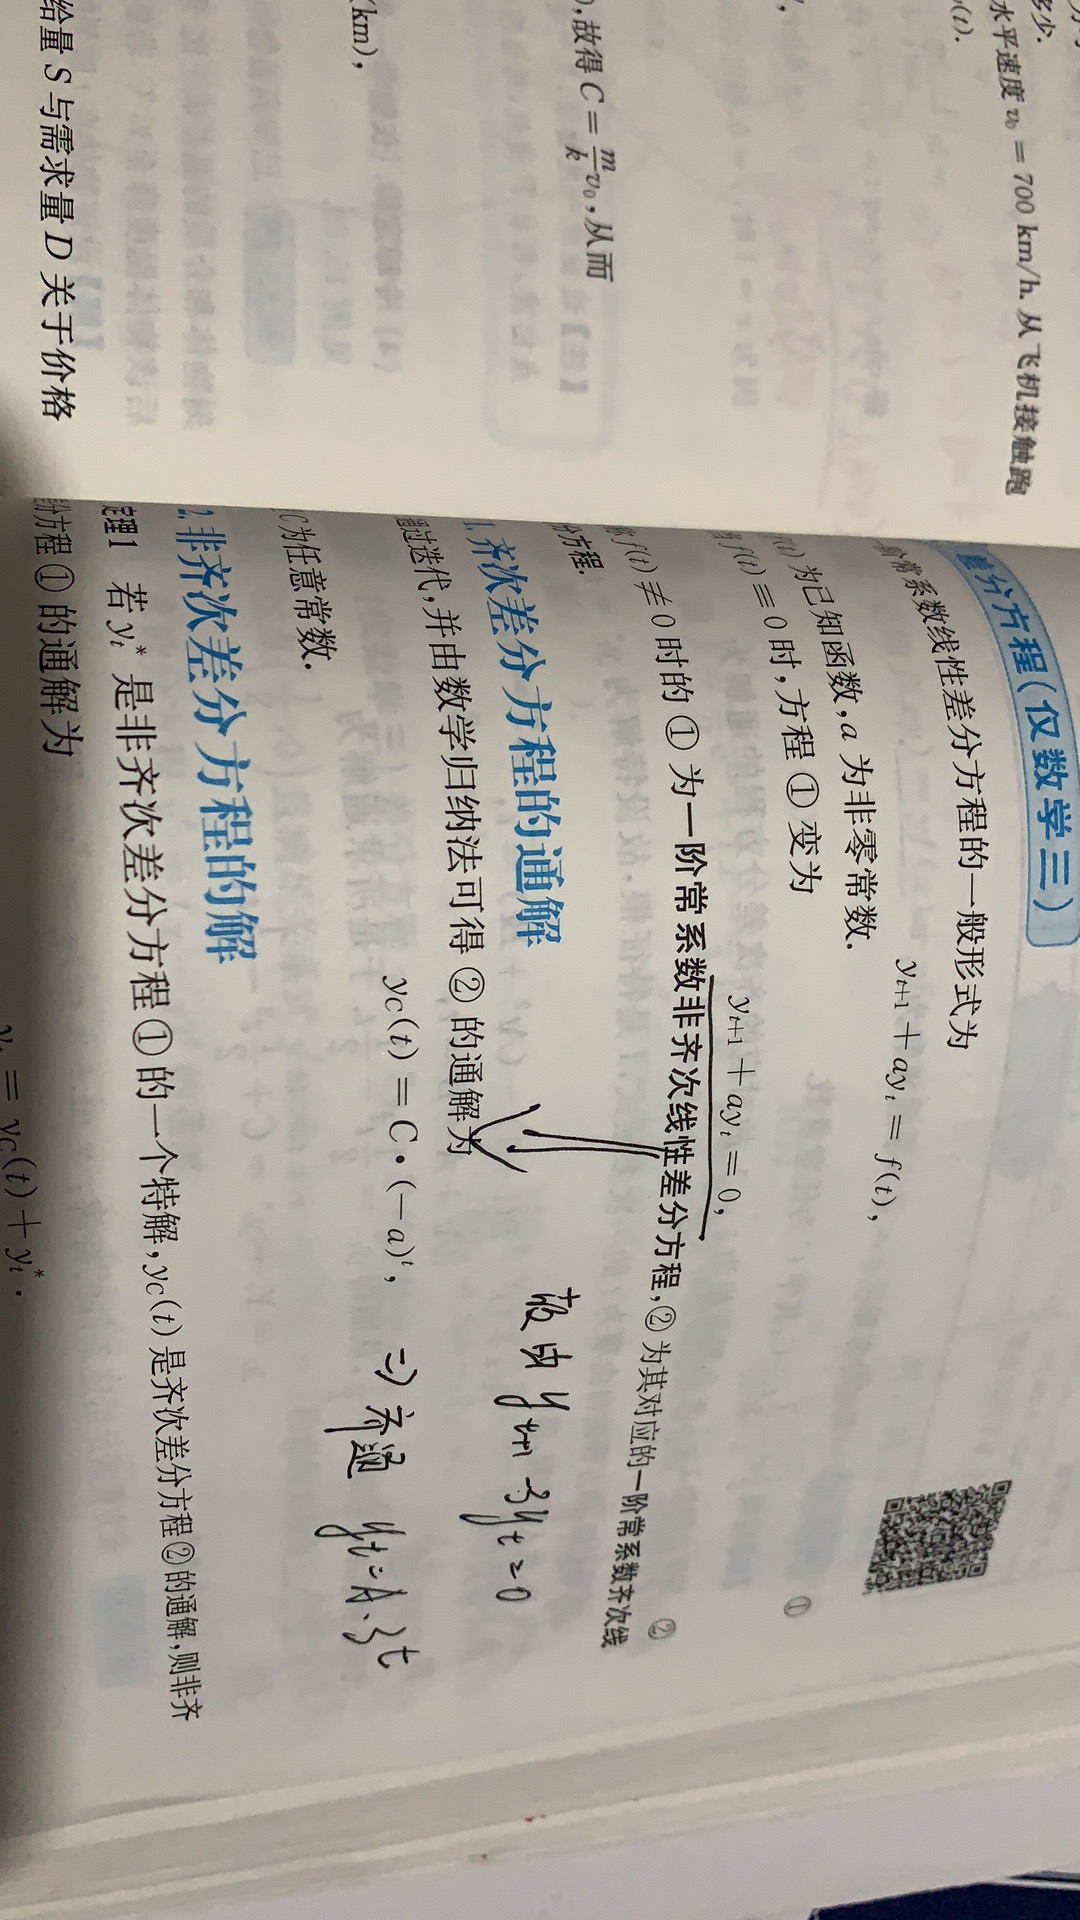 多少.
水平速度 v₀ = 700 km/h. 从飞机接触跑
,故得 C = \frac{m}{k}v₀,从而
(km),
给量 S 与需求量 D 关于价格
差分方程(仅数学三)
阶常系数线性差分方程的一般形式为
y_{t+1} + ay_t = f(t), ①
f(t) 为已知函数,a 为非零常数.
当 f(t) ≡ 0 时,方程 ① 变为
y_{t+1} + ay_t = 0, ②
称 f(t) ≢ 0 时的 ① 为一阶常系数非齐次线性差分方程,② 为其对应的一阶常系数齐次线
分方程.
1. 齐次差分方程的通解
通过迭代,并由数学归纳法可得 ② 的通解为
故由 y_{t+1} 3y_t = 0
y_C(t) = C·(−a)^t,
⇒ 齐通 y_t = A·3^t
C为任意常数.
2. 非齐次差分方程的解
定理1 若 y_t^* 是非齐次差分方程 ① 的一个特解,y_C(t) 是齐次差分方程 ② 的通解,则非齐
分方程 ① 的通解为
y_t = y_C(t) + y_t^*.